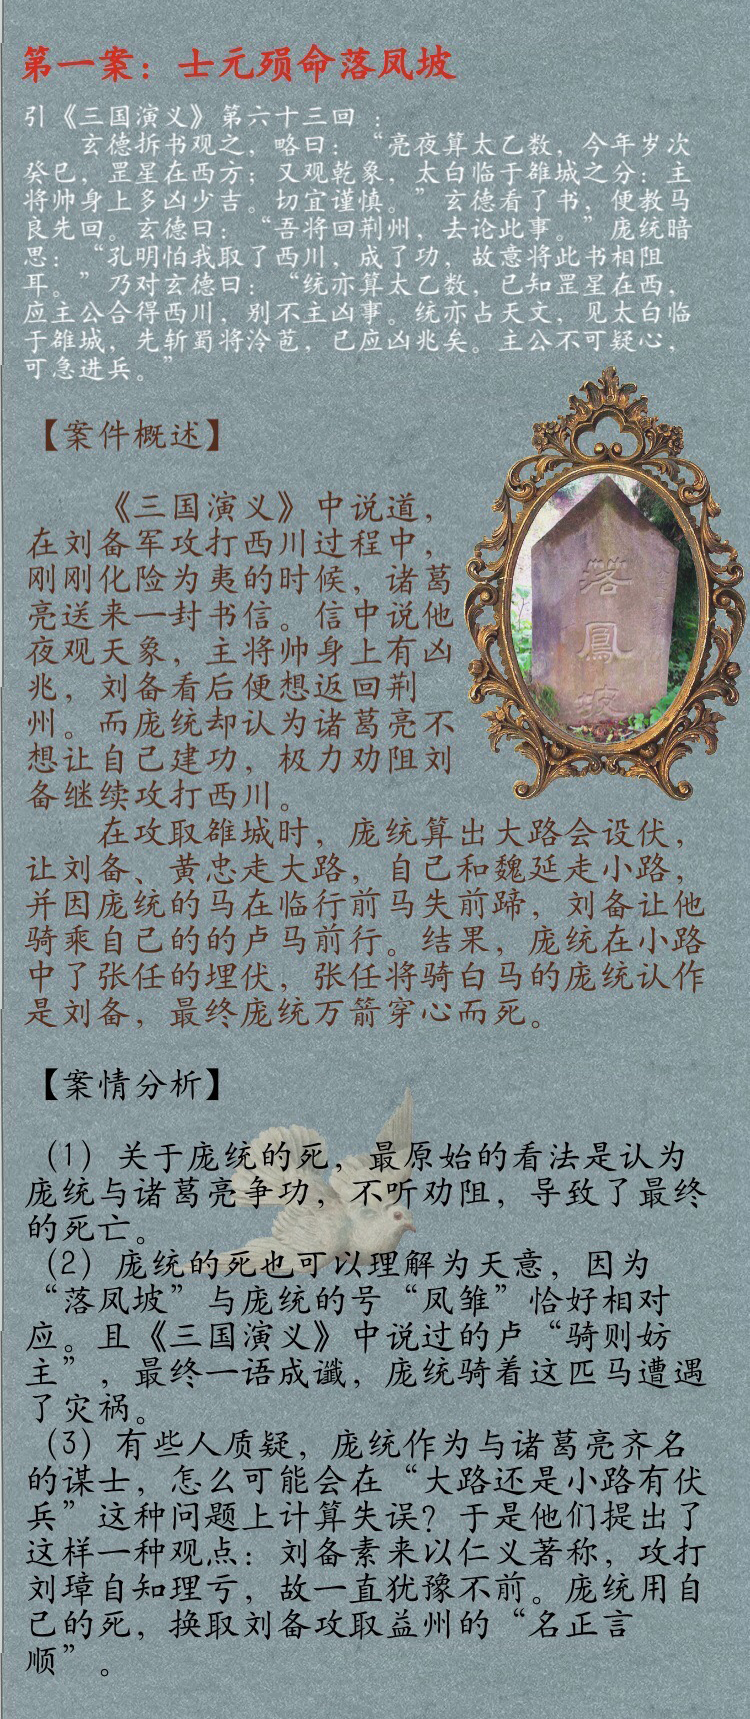 第一案：士元殒命落凤坡
引《三国演义》第六十三回：
玄德拆书观之，略曰：“亮夜算太乙数，今年岁次
癸巳，罡星在西方；又观乾象，太白临于雒城之分：主
将帅身上多凶少吉。切宜谨慎。”玄德看了书，便教马
良先回。玄德曰：“吾将回荆州，去论此事。”庞统暗
思：“孔明怕我取了西川，成了功，故意将此书相阻
耳。”乃对玄德曰：“统亦算太乙数，已知罡星在西，
应主公合得西川，别不主凶事。统亦占天文，见太白临
于雒城，先斩蜀将泠苞，已应凶兆矣。主公不可疑心，
可急进兵。”
【案件概述】
《三国演义》中说道，
在刘备军攻打西川过程中，
刚刚化险为夷的时候，诸葛
亮送来一封书信。信中说他
夜观天象，主将帅身上有凶
兆，刘备看后便想返回荆
州。而庞统却认为诸葛亮不
想让自己建功，极力劝阻刘
备继续攻打西川。
落
鳳
坡
在攻取雒城时，庞统算出大路会设伏，
让刘备、黄忠走大路，自己和魏延走小路，
并因庞统的马在临行前马失前蹄，刘备让他
骑乘自己的的卢马前行。结果，庞统在小路
中了张任的埋伏，张任将骑白马的庞统认作
是刘备，最终庞统万箭穿心而死。
【案情分析】
（1）关于庞统的死，最原始的看法是认为
庞统与诸葛亮争功，不听劝阻，导致了最终
的死亡。
（2）庞统的死也可以理解为天意，因为
“落凤坡”与庞统的号“凤雏”恰好相对
应。且《三国演义》中说过的卢“骑则妨
主”，最终一语成谶，庞统骑着这匹马遭遇
了灾祸。
（3）有些人质疑，庞统作为与诸葛亮齐名
的谋士，怎么可能会在“大路还是小路有伏
兵”这种问题上计算失误？于是他们提出了
这样一种观点：刘备素来以仁义著称，攻打
刘璋自知理亏，故一直犹豫不前。庞统用自
己的死，换取刘备攻取益州的“名正言
顺”。